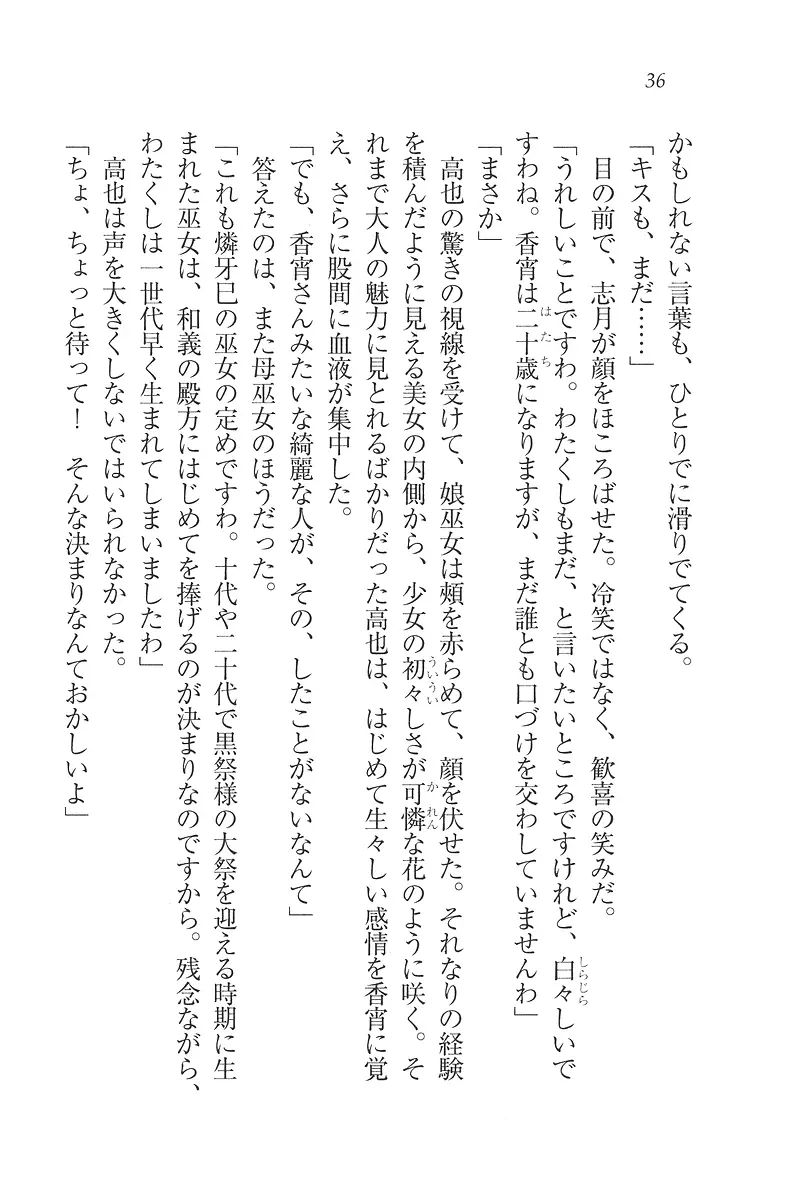 36
かもしれない言葉も、ひとりでに滑りでてくる。
「キスも、まだ……」
目の前で、志月が顔をほころばせた。冷笑ではなく、歓喜の笑みだ。
「うれしいことですわ。わたくしもまだ、と言いたいところですけれど、白々しいで
すわね。香宵は二十歳になりますが、まだ誰とも口づけを交わしていませんわ」
「まさか」
高也の驚きの視線を受けて、娘巫女は頰を赤らめて、顔を伏せた。それなりの経験
を積んだように見える美女の内側から、少女の初々しさが可憐な花のように咲く。そ
れまで大人の魅力に見とれるばかりだった高也は、はじめて生々しい感情を香宵に覚
え、さらに股間に血液が集中した。
「でも、香宵さんみたいな綺麗な人が、その、したことがないなんて」
答えたのは、また母巫女のほうだった。
「これも燐牙巳の巫女の定めですわ。十代や二十代で黒祭様の大祭を迎える時期に生
まれた巫女は、和義の殿方にはじめてを捧げるのが決まりなのですから。残念ながら、
わたくしは一世代早く生まれてしまいましたわ」
高也は声を大きくしないではいられなかった。
「ちょ、ちょっと待って！　そんな決まりなんておかしいよ」